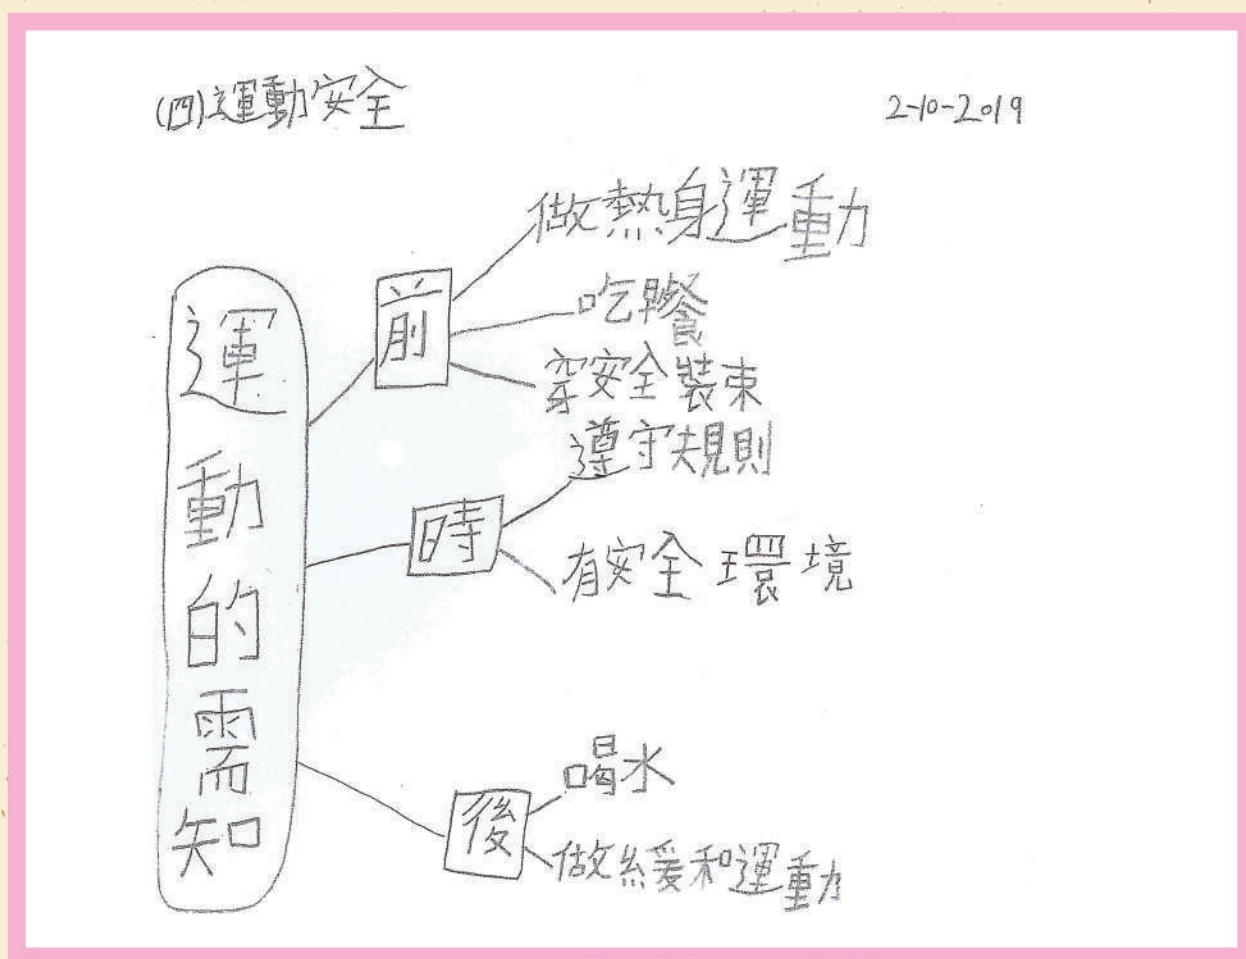 (四)運動安全
2-10-2019
運動的需知
前
做熱身運動
吃早餐
穿安全裝束
時
遵守規則
有安全環境
後
喝水
做緩和運動